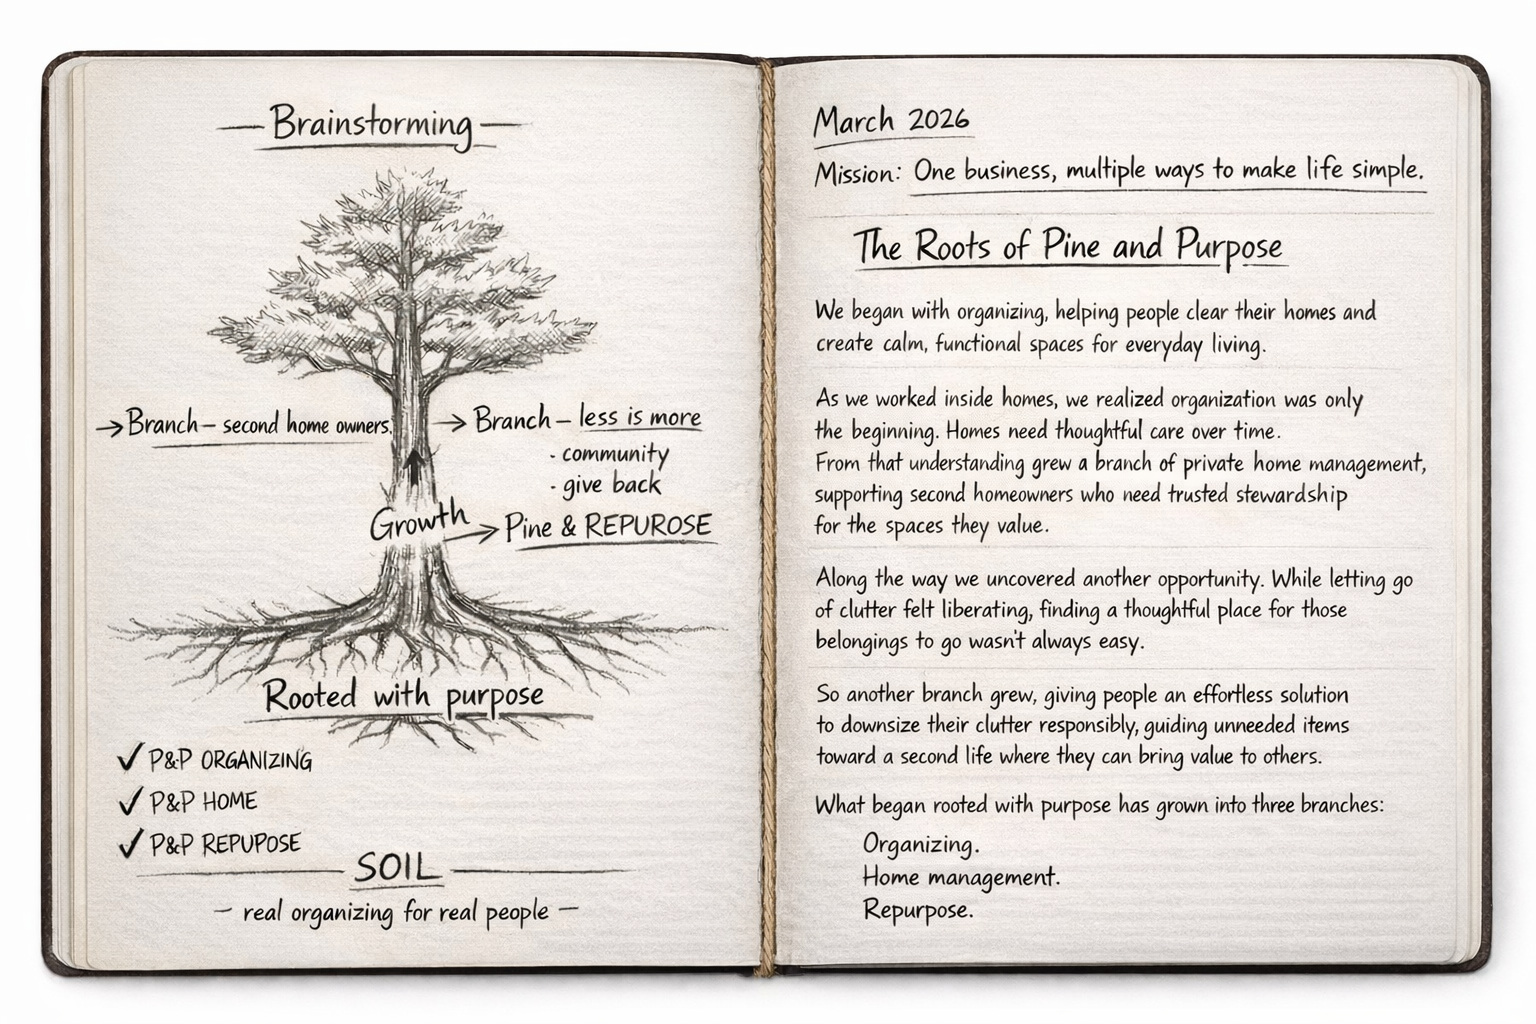 — Brainstorming —
→ Branch – second home owners.
→ Branch – less is more
- community
- give back
Growth → Pine & REPUROSE
Rooted with purpose
✓ P&P ORGANIZING
✓ P&P HOME
✓ P&P REPUPOSE
SOIL
– real organizing for real people –
March 2026
Mission: One business, multiple ways to make life simple.
The Roots of Pine and Purpose
We began with organizing, helping people clear their homes and
create calm, functional spaces for everyday living.
As we worked inside homes, we realized organization was only
the beginning. Homes need thoughtful care over time.
From that understanding grew a branch of private home management,
supporting second homeowners who need trusted stewardship
for the spaces they value.
Along the way we uncovered another opportunity. While letting go
of clutter felt liberating, finding a thoughtful place for those
belongings to go wasn't always easy.
So another branch grew, giving people an effortless solution
to downsize their clutter responsibly, guiding unneeded items
toward a second life where they can bring value to others.
What began rooted with purpose has grown into three branches:
Organizing.
Home management.
Repurpose.